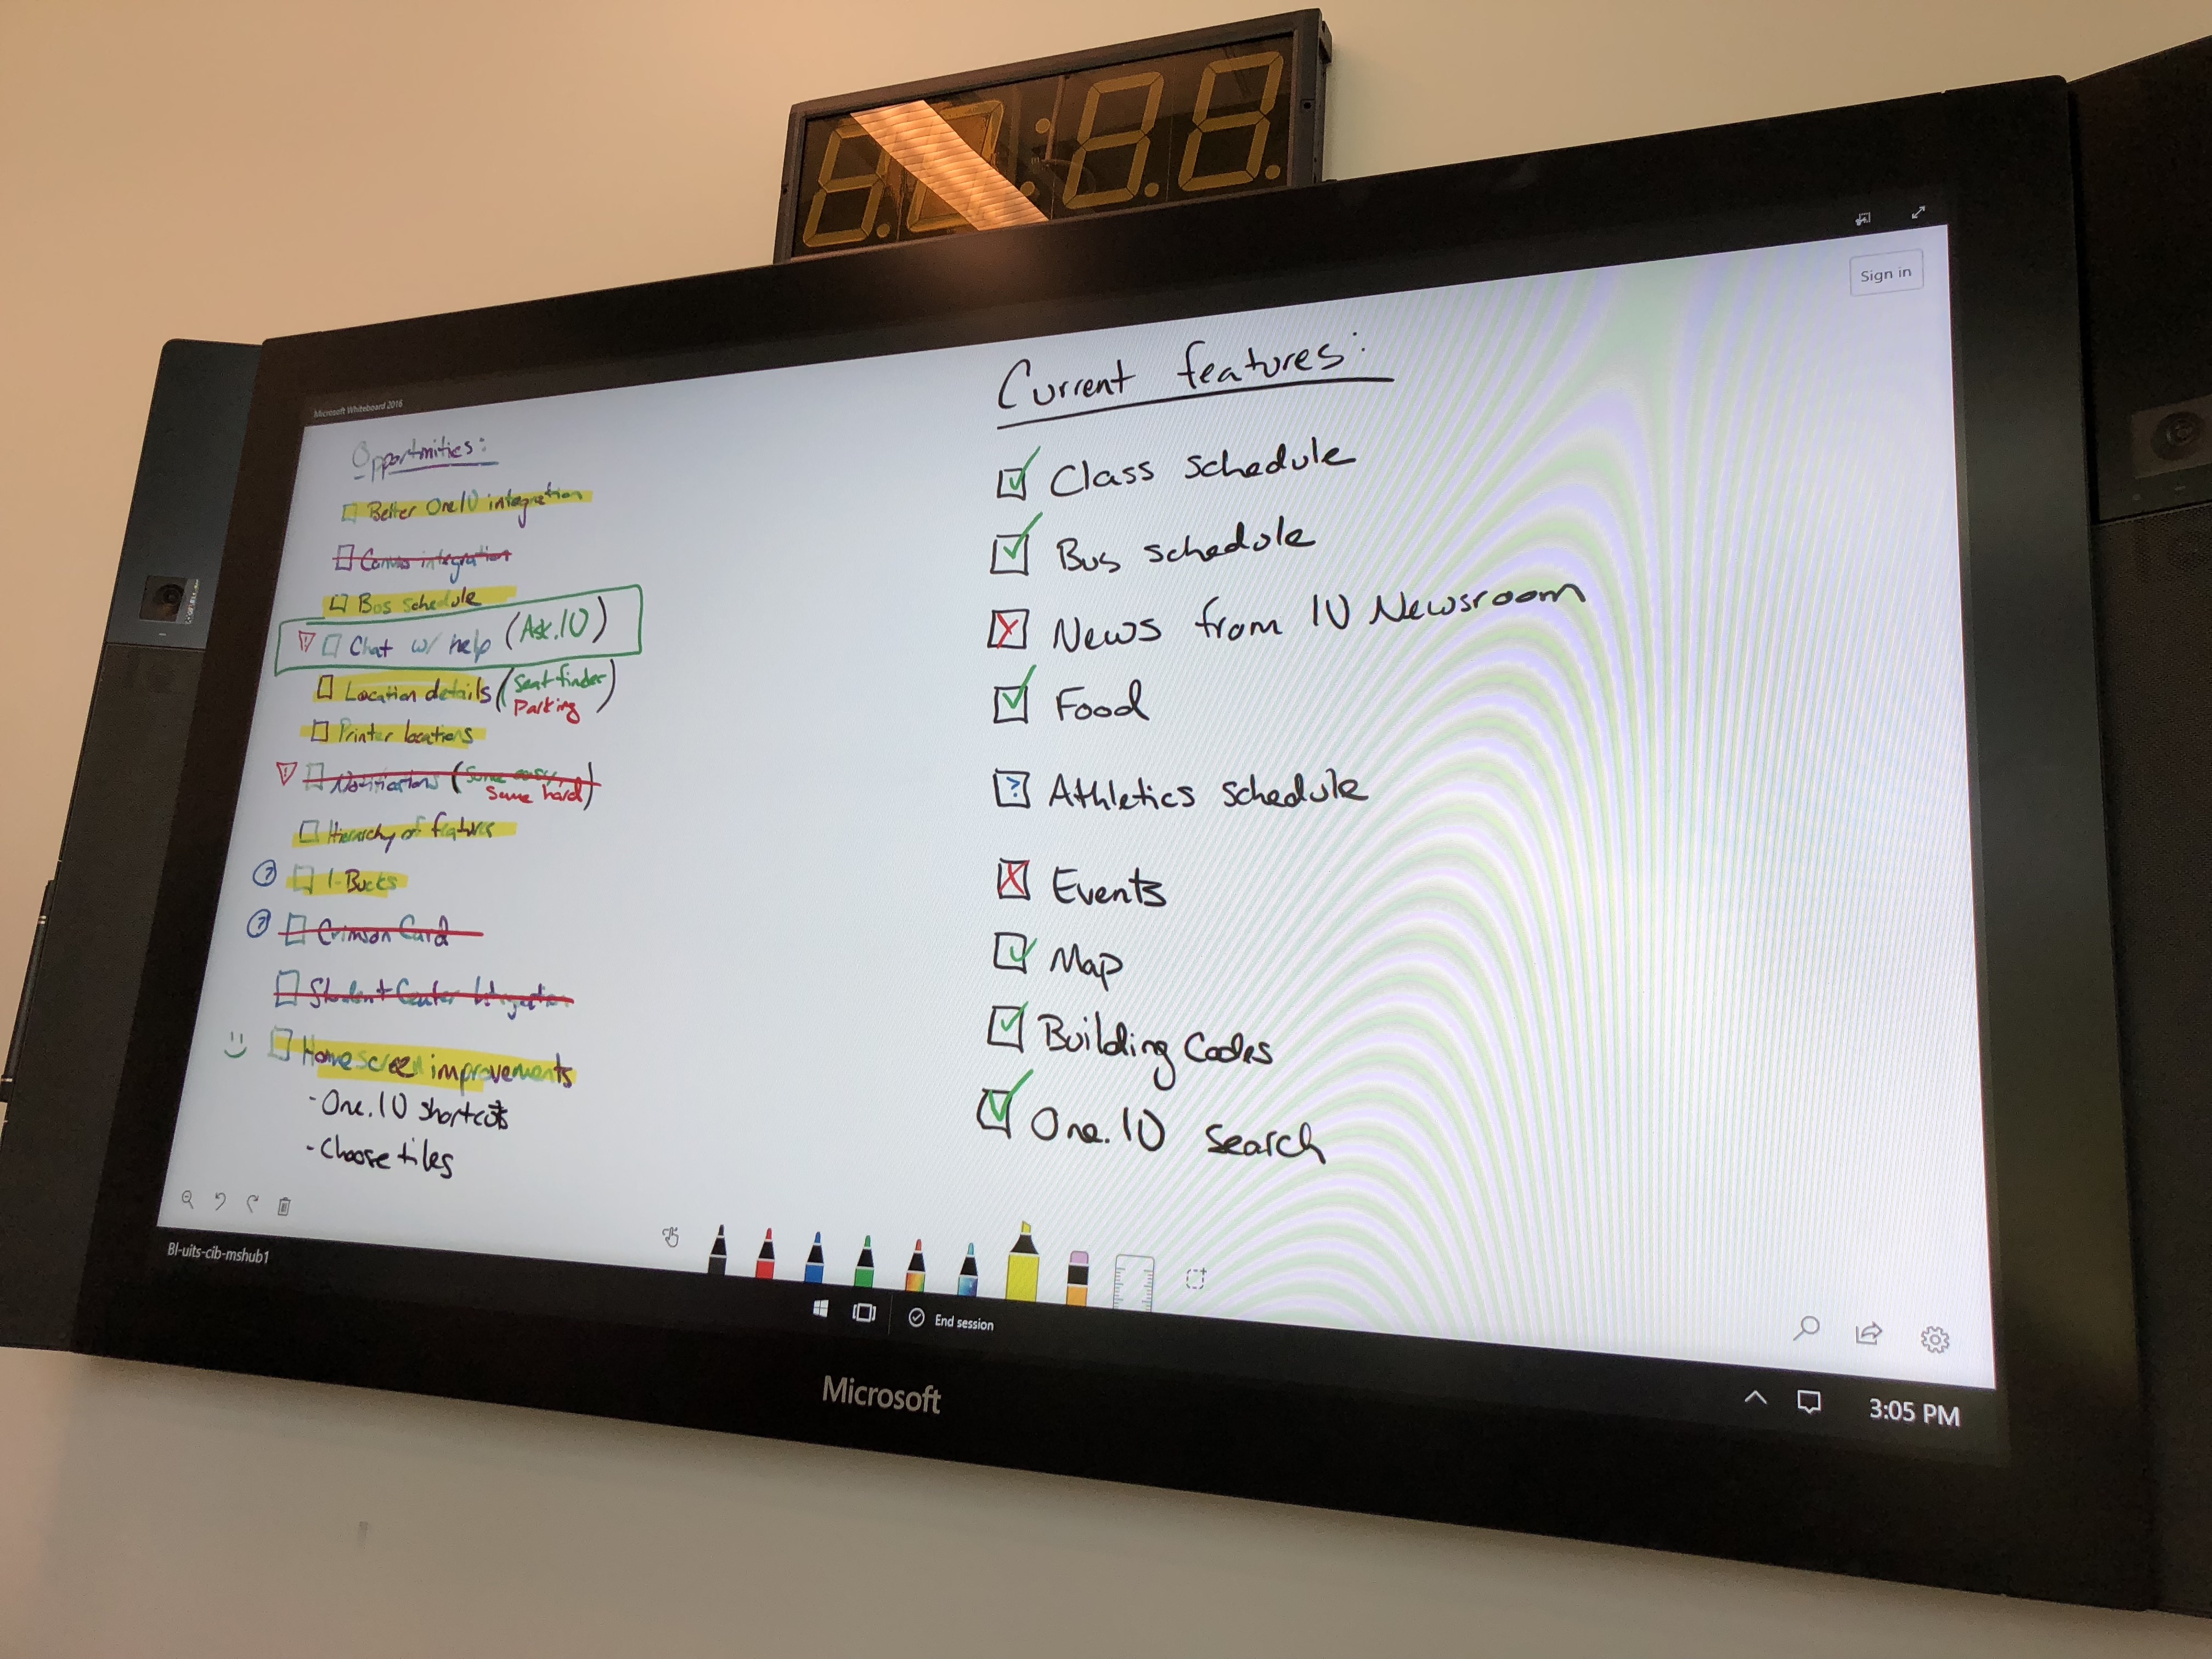 Sign in
Microsoft Whiteboard 2016
Opportunities:
Better One IU integration
Canvas integration
Bus schedule
Chat w/ help (Ask.IU)
Location details (Seat finder
Parking)
Printer locations
Notifications (Some easy,
Some hard)
Hierarchy of features
I-Bucks
Crimson Card
Student Center Integration
Home screen improvements
- One.IU shortcuts
- Choose tiles
Current features:
Class schedule
Bus schedule
News from IU Newsroom
Food
? Athletics schedule
Events
Map
Building Codes
One.IU search
Bl-uits-cib-mshub1
End session
Microsoft
3:05 PM